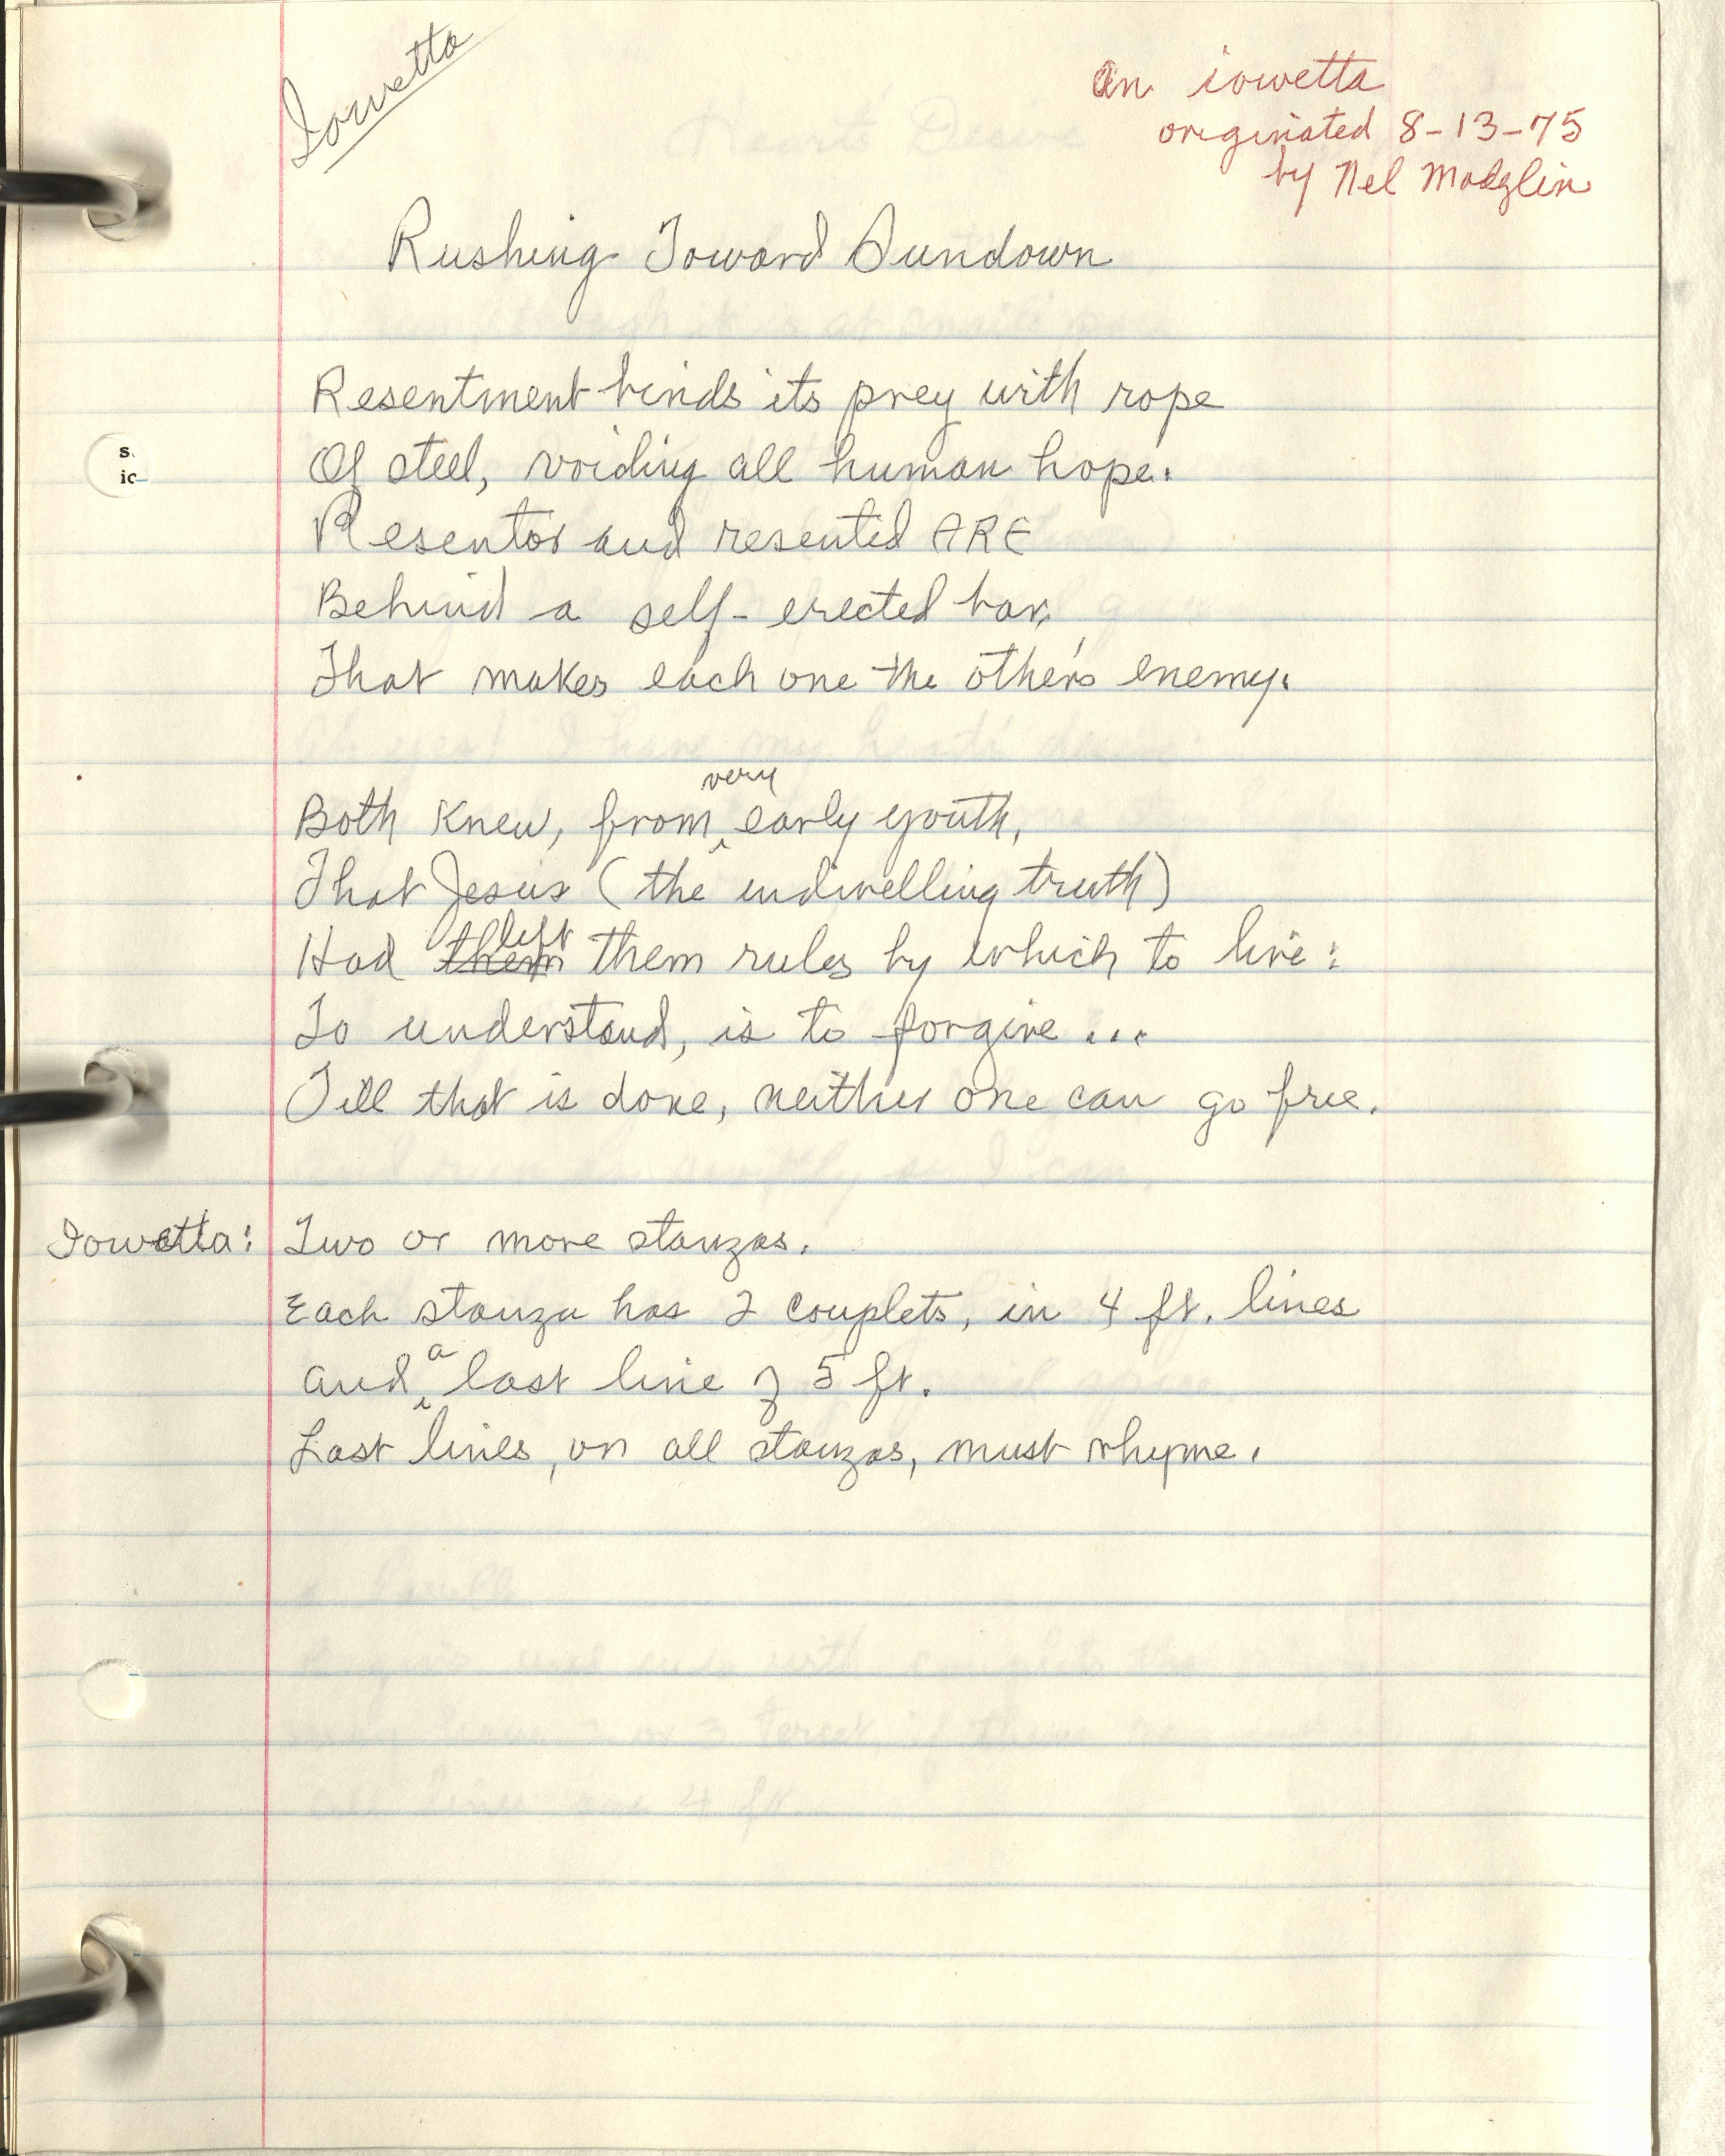 Iowetta
An iowetta
originated 8-13-75
by Nel Modglin
Rushing Toward Sundown
Resentment binds its prey with rope
Of steel, voiding all human hope.
Resentor and resented ARE
Behind a self-erected bar,
That makes each one the other's enemy.
Both knew, from very early youth,
That Jesus (the indwelling truth)
Had them left them rules by which to live:
To understand, is to forgive...
Till that is done, neither one can go free.
Iowetta: Two or more stanzas.
Each stanza has 2 couplets, in 4 ft. lines
and a last line of 5 ft.
Last lines, on all stanzas, must rhyme.
s.
ic